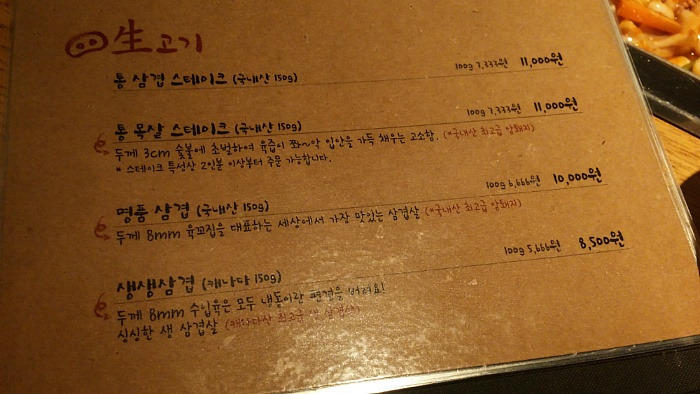 生고기
통 삼겹 스테이크 (국내산 150g) 100g 7,333원 11,000원
통 목살 스테이크 (국내산 150g) 100g 7,333원 11,000원
두께 3cm 숯불에 초벌하여 육즙이 쫘~악 입안을 가득 채우는 고소함. (*국내산 최고급 암퇘지)
* 스테이크 특성상 2인분 이상부터 주문 가능합니다.
명품 삼겹 (국내산 150g) 100g 6,666원 10,000원
두께 8mm 육꼬집을 대표하는 세상에서 가장 맛있는 삼겹살 (*국내산 최고급 암퇘지)
생생삼겹 (캐나다 150g) 100g 5,666원 8,500원
두께 8mm 수입육은 모두 냉동이란 편견을 버려요!
싱싱한 생 삼겹살 (캐나다산 최고급 생 삼겹살)